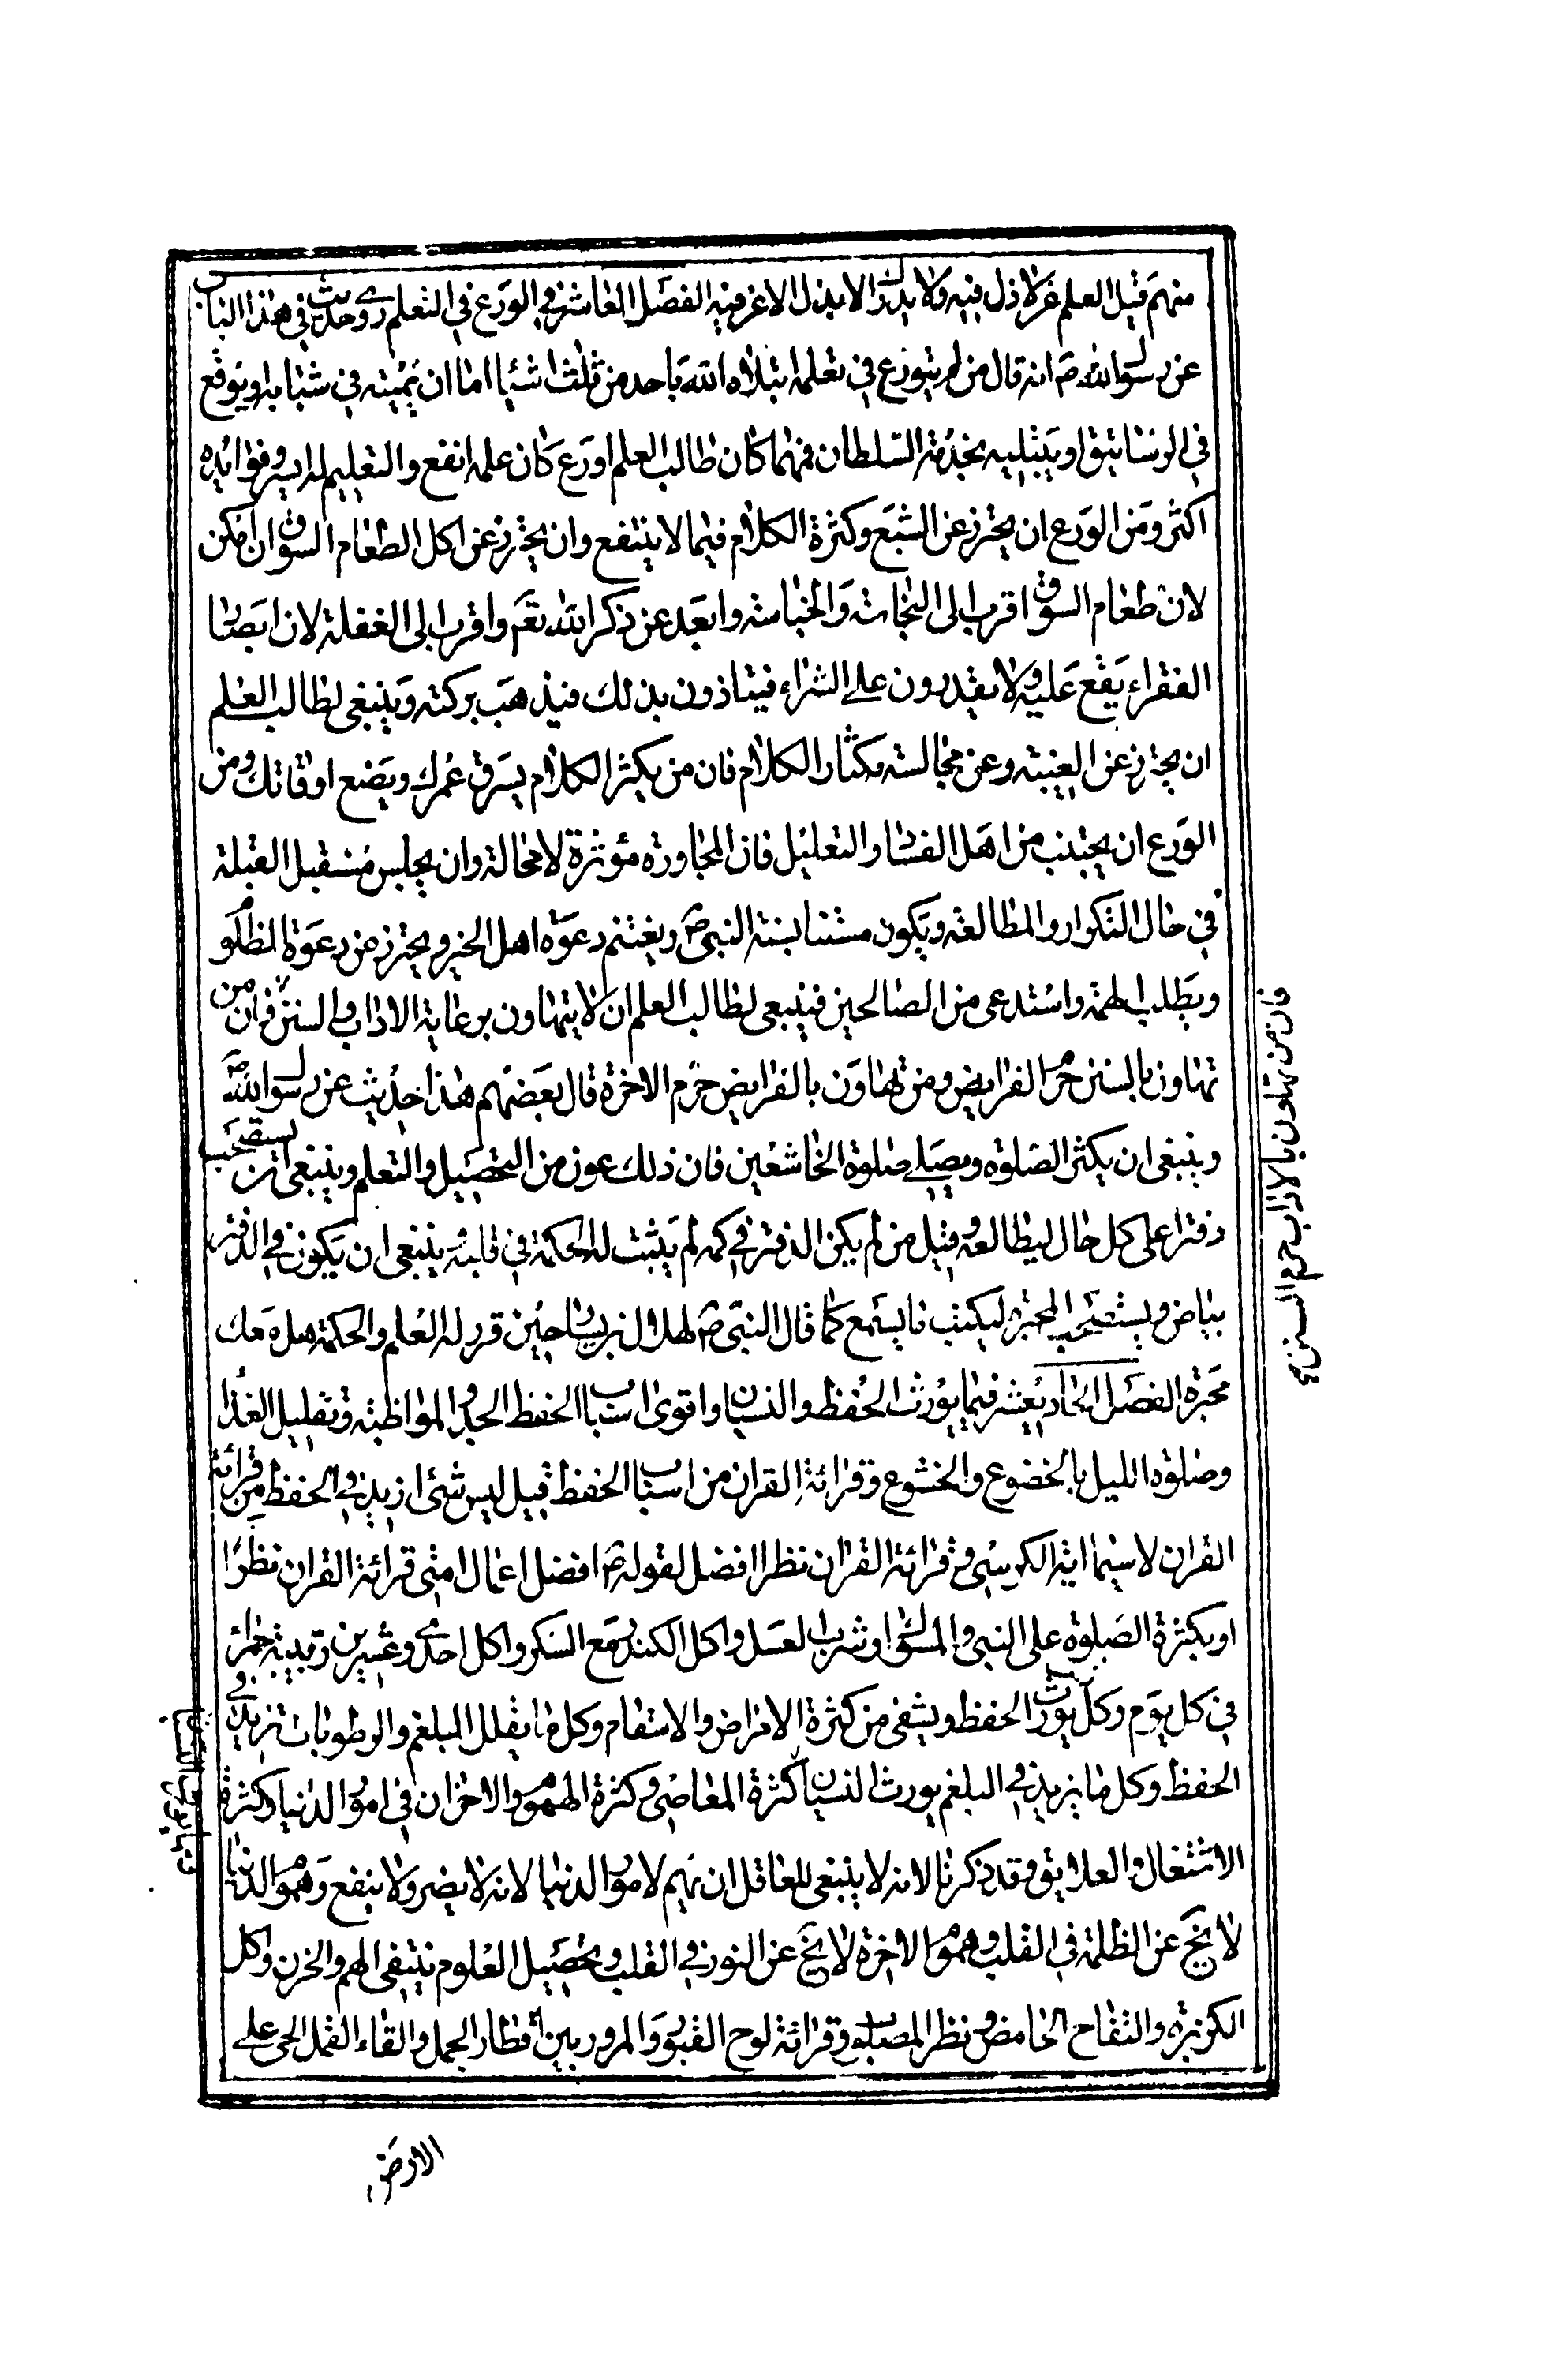 منهم قيل العلم عز لا ذل فيه ولا يدرك الا بذل لا عز فيه الفصل العاشر في الورع في التعلم روى حديث في هذا الباب
عن رسول الله ص انه قال من لم يتورع في تعلمه ابتلاه الله باحد من ثلثة اشياء اما ان يميته في شبابه او يوقع
في الرساتيق او يبتليه بخدمة السلطان فمهما كان طالب العلم اورع كان علمه انفع والتعليم له ايسر وفوايده
اكثر ومن الورع ان يحترز عن الشبع وكثرة الكلام فيما لا ينتفع وان يحترز عن اكل الطعام السوق ان امكن
لان طعام السوق اقرب الى النجاسة والخباثة وابعد عن ذكر الله تعم واقرب الى الغفلة لان ابصار
الفقراء يقع عليه ولا يقدرون على الشراء فيتاذون بذلك فيذهب بركته وينبغي لطالب العلم
ان يحترز عن الغيبته وعن مجالسته مكثار الكلام فان من يكثر الكلام يسرق عمرك ويضع اوقاتك ومن
الورع ان يجتنب من اهل الفساد والتعليل فان المجاورة مؤثرة لا محالة وان يجلس مستقبل القبلة
في حال التكرار والمطالعة ويكون مستنا بسنة النبى ص ويغتنم دعوة اهل الخير ويحترز من دعوة المظلوم
ويطلب الهمة واستدعى من الصالحين فينبغى لطالب العلم ان لا يتهاون برعاية الاداب والسنن فان من
تهاون بالسنن حرم الفرايض ومن تهاون بالفرايض حرم الاخرة قال بعضهم هذا حديث عن رسول الله ص
وينبغى ان يكثر الصلوة ويصلى صلوة الخاشعين فان ذلك عون من التحصيل والتعلم وينبغى ان يستصحب
دفترا على كل حال ليطالعه وقيل من لم يكن الدفتر في كمه لم يثبت له الحكمة في قلبه وينبغى ان يكون في الدفتر
بياض ويستصحب المحبرة ليكتب ما يسمع كما قال النبى ص لهلال بن يسار حين قرر له العلم والحكمة هل معك
محبرة الفصل الحاديعشر فيما يورث الحفظ والنسيان واقوى اسباب الحفظ الجد والمواظبة وتقليل الغذا
وصلوة الليل بالخضوع والخشوع وقرائة القران من اسباب الحفظ قيل ليس شئ ازيد في الحفظ من قرائة
القران لا سيما اية الكرسى وقرائة القران نظرا افضل لقوله ص افضل اعمال امتى قرائة القران نظرا
او بكثرة الصلوة على النبى والمسواك وشرب العسل واكل الكندر مع السكر واكل احدى وعشرين زبيبة حمراء
في كل يوم وكل يورث الحفظ ويشفى من كثرة الامراض والاسقام وكل ما يقلل البلغم والرطوبات تزيد في
الحفظ وكل ما يزيد في البلغم يورث النسيان كثرة المعاصى وكثرة الهموم والاحزان في امور الدنيا وكثرة
الاشتغال والعلايق وقد ذكرنا لانه لا ينبغى للعاقل ان يهم لامور الدنيا لانه لا يضر ولا ينفع وهموم الدنيا
لا يخ عن الظلمة في القلب وهموم الاخرة لا يخ عن النور في القلب وتحصيل العلوم ينتفى الهم والحزن واكل
الكزبزة والتفاح الحامض ونظر المصلوب وقرائة لوح القبور والمرور بين اقطار الجمل والقاء القمل الحى على
الارض
فان من تهاون بالاداب حرم السنن